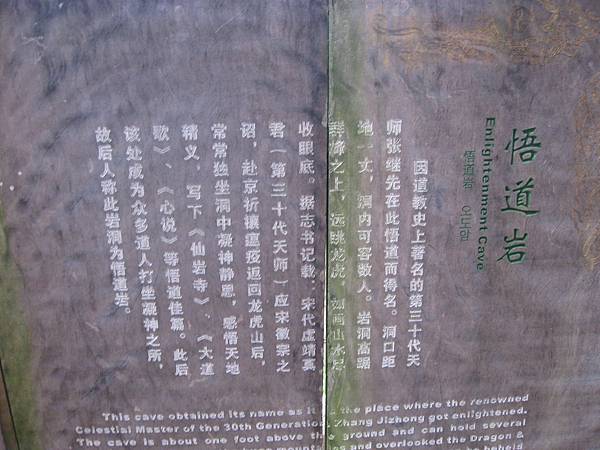 悟道岩
Enlightenment Cave
悟道岩 오도암
因道教史上著名的第三十代天
师张继光在此悟道而得名。洞口距
地一丈，洞内可容数人。岩洞高踞
群峰之上，远眺龙虎，如画山水尽
收眼底。据志书记载：宋代虚靖真
君（第三十代天师）应宋徽宗之
诏，赴京祈禳瘟疫返回龙虎山后，
常常独坐洞中凝神静思，感悟天地
精义，写下《仙岩寺》、《大道
歌》、《心说》等悟道佳篇。此后
该处成为众多道人打坐凝神之所，
故后人称此岩洞为悟道岩。
This cave obtained its name as it is the place where the renowned
Celestial Master of the 30th Generation, Zhang Jizhong got enlightened.
The cave is about one foot above the ground and can hold several
mountains and overlooked the Dragon &
be beheld